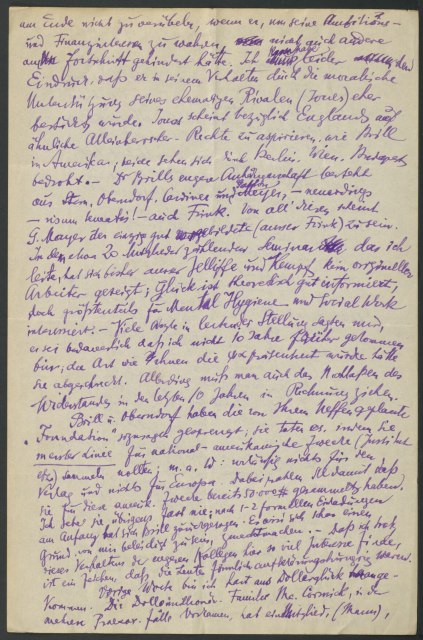 am Ende nicht zu verübeln, wenn er, um seine Ambitions-
und Finanzinteressen zu wahren, nicht auch andere
am Fortschritt gehindert hätte. Ich habe leider den
Eindruck, daß er in seinem Verhalten durch die moralische
Unterstützung seines ehemaligen Rivalen (Jones) eher
bestärkt wurde. Jones scheint bezüglich Englands auf
ähnliche Alleinherrscher-Rechte zu aspirieren, wie Brill
in Amerika; beide sehen sich durch Berlin, Wien, Budapest
bedroht. – Dr Brills engere Anhängerschaft besteht
aus Stern, Oberndorf, und Meyer, – neuerdings
– risum teneatis! – auch Frink. Von all' diesen scheint
G. Mayer der einzig gut gebildete (ausser Frink) zu sein.
In dem etwa 20 Mitglieder zählenden Seminar, das ich
leite, hat sich bisher ausser Jelliffe und Kempf kein origineller
Arbeiter gezeigt; Glück ist theoretisch gut informiert,
doch größtenteils für Mental Hygiene und Social Work
interessiert. – Viele Ärzte in leitender Stellung sagten mir,
es sei bedauerlich daß ich nicht 10 Jahre früher gekommen
bin; die Art wie ihnen die ψα präsentiert wurde hätte
sie abgeschreckt. Allerdings muß man auch das Nachlassen des
Widerstandes in den letzten 10 Jahren in Rechnung ziehen.
Brill u. Oberndorf haben die von Ihrem Neffen geplante
„Foundation" sozusagen gesprengt; sie taten es, indem sie
in erster Linie für national-amerikanische Zwecke (Institut
etc) sammeln wollen, m. a. W: vorläufig nichts für den
Verlag und nichts für Europa. Dabei prahlen sie damit daß
sie für diese amerik. Zwecke bereits gesammelt haben.
Ich sehe sie übrigens fast nie; nach 1-2 formellen Einladungen
am Anfang hat sich Brill zurückgezogen. Es muß sich schon einen
Grund, von mir beleidigt zu sein, zurechtmachen. – daß ich trotz
dieses Verhaltens der engeren Kollegen hier so viel Interesse finde,
ist ein Zeichen, daß die Leute förmlich aufklärungshungrig waren.
Vorige Woche bin ich hart ans Dollarglück
kommen. Die Dollarmillionär-Familie Mc. Cormick, in der
mehrere Praecox-Fälle vorkamen, hat ein Mitglied, (Mann),